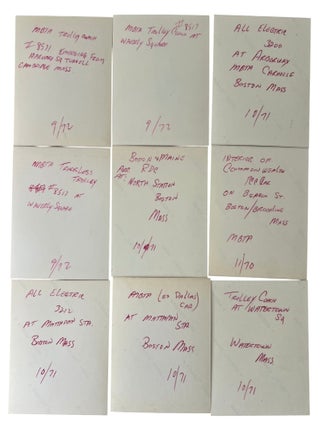 MBTA Trolley Coach
# 8571 Emerging From
Harvard Sq Tunnel
Cambridge Mass
9/72
MBTA Trolley Coach # 8517 at
Waverly Square
9/72
All Electric
3200
At Arborway
MBTA Carhouse
Boston Mass
10/71
MBTA Trackless
Trolley
8517 at
Waverly Square
9/72
Boston & Maine
RDC
At North Station
Boston
Mass
10/71
Interior of
Commonwealth
PCC Car
on Beacon St.
Boston/Brookline
Mass
MBTA
11/70
All Electric
3202
At Mattapan Sta.
Boston Mass
10/71
MBTA (ex Dallas
Car)
At Mattapan
Sta.
Boston Mass
10/71
Trolley Coach
at Watertown
Sq
Watertown
Mass
10/71